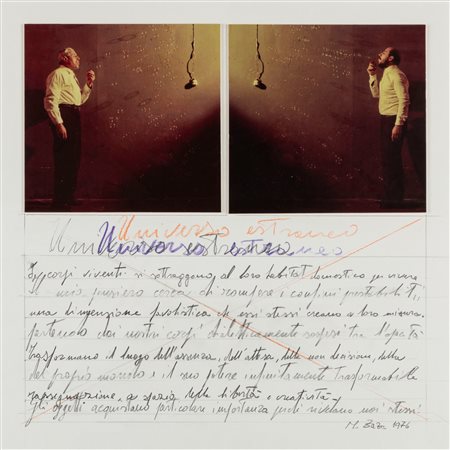 Universo estraneo
Universo estraneo
I corpi viventi si sottraggono al loro habitat domestico per vivere
il mio pensiero cerca di rompere i confini prestabiliti,
una dimensione fantastica che essi stessi creano a loro misura.
partendo dai nostri corpi dialetticamente sospesi tra l'opacità
trasformano il luogo dell'assenza, dell'attesa, delle non decisioni, della
del proprio mondo e il suo potere infinitamente trasformabile
rassegnazione, a spazio della libertà e creatività
gli oggetti acquistano particolare importanza quali rivelano noi stessi.
M. 1976